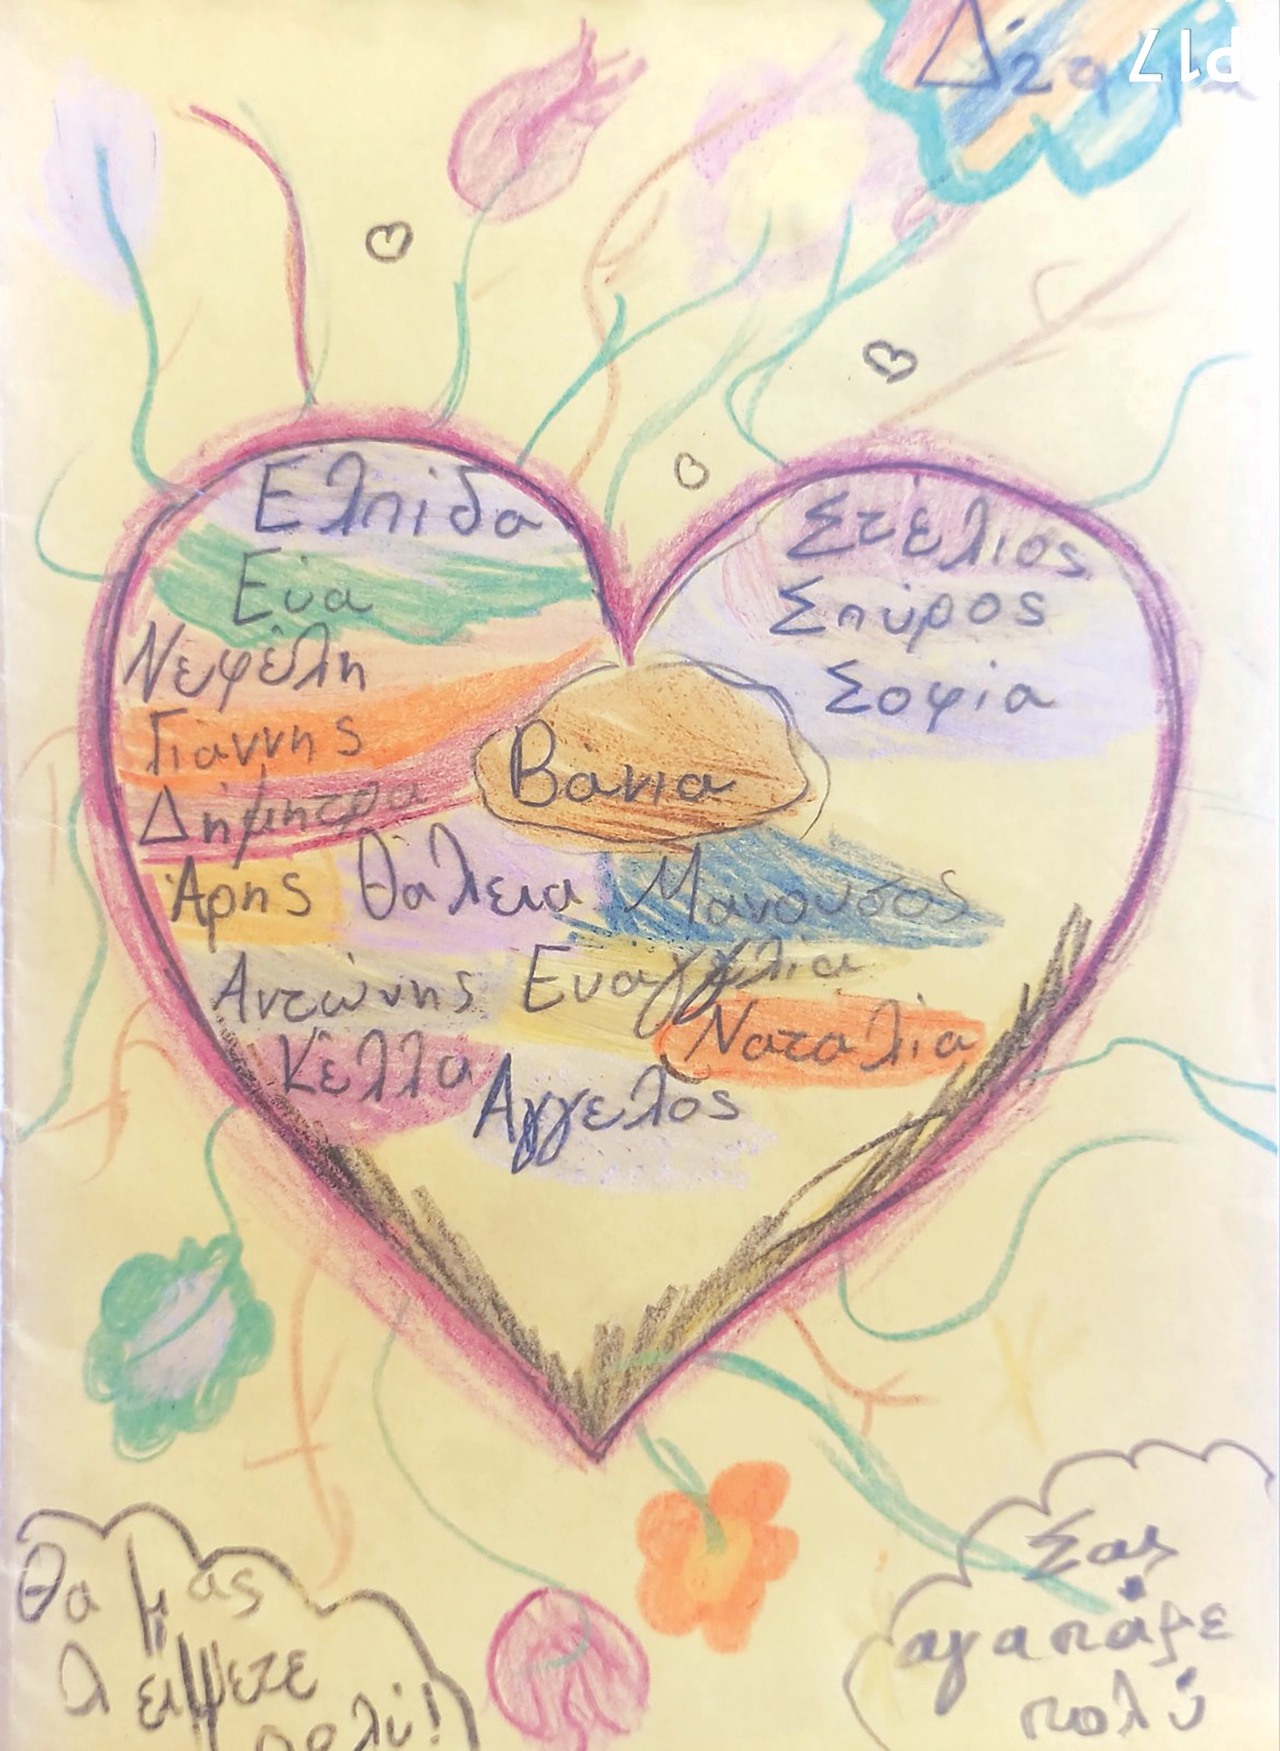 P17
Ελπίδα
Εύα
Νεφέλη
Γιάννης
Δήμητρα
Στέλιος
Σπύρος
Σοφία
Βάνια
Άρης Θάλεια Μανούσος
Αντώνης Ευαγγελία
Ναταλία
Κέλλα
Αγγελος
Θα μας
λείψετε
πολύ!
Σας
αγαπάμε
πολύ